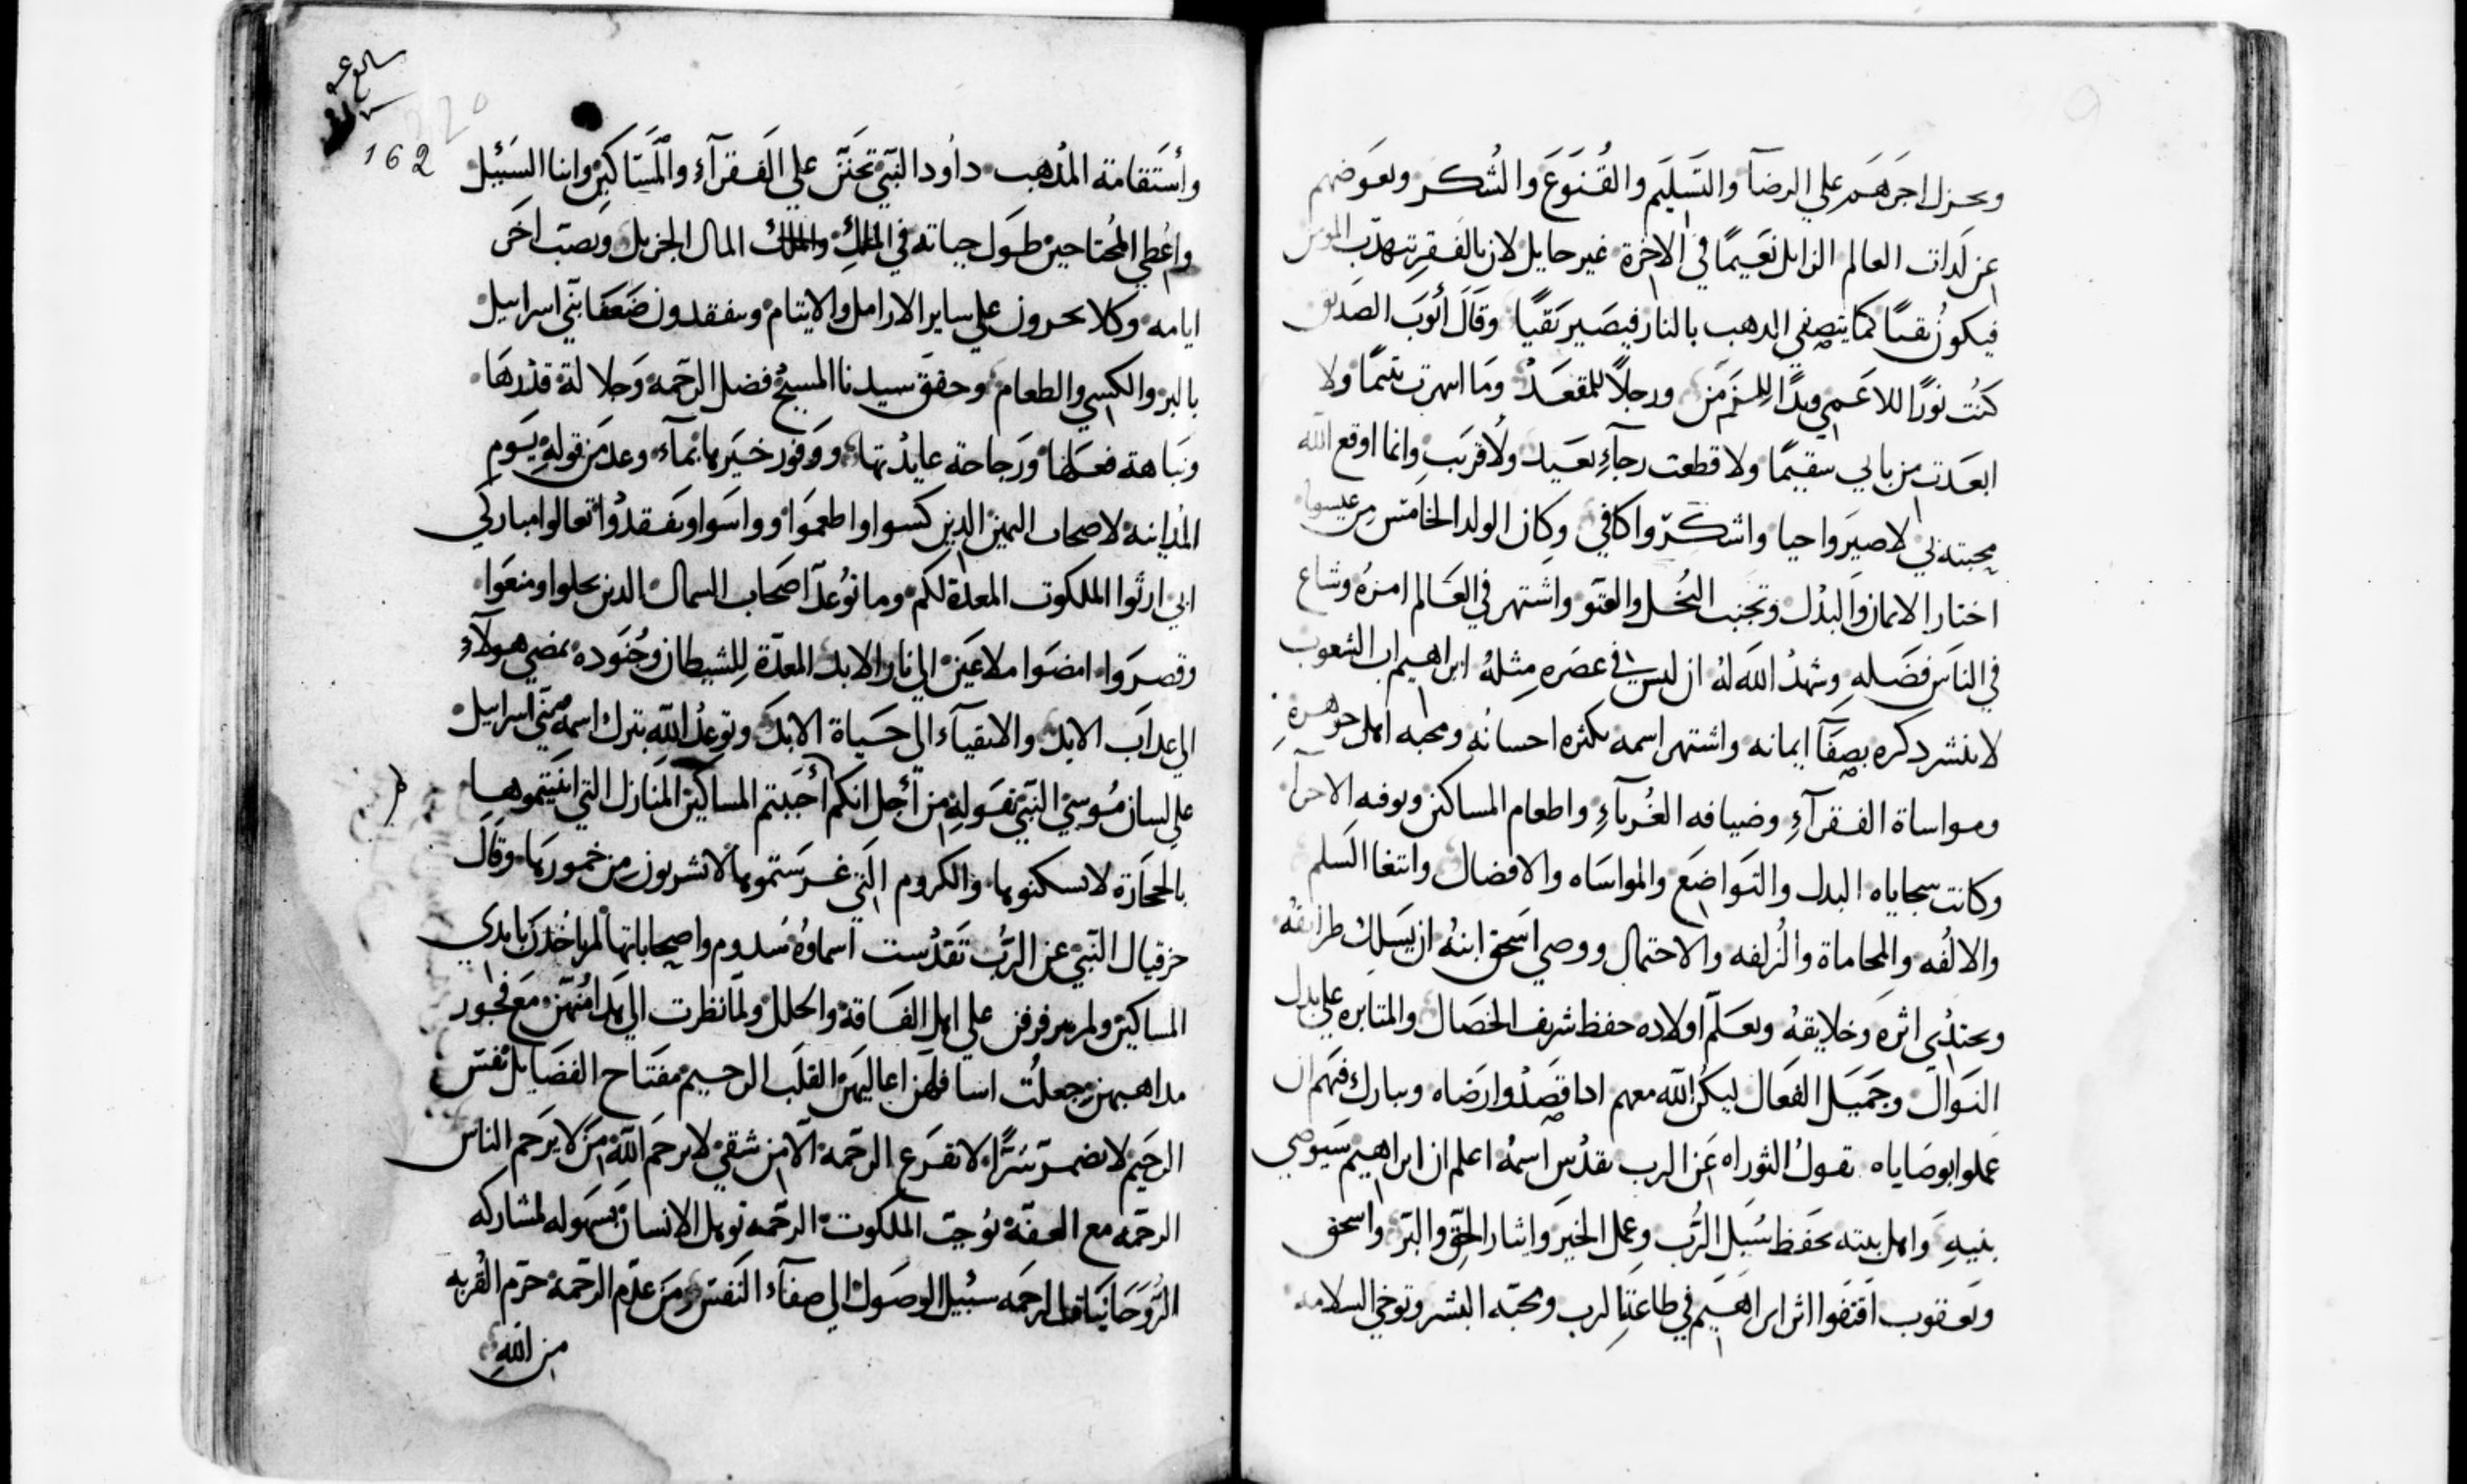 ويجزل اجرهم علي الرضآ والتسليم والقنوع والشكر ويعوضهم
عن لدات العالم الزايل نعيمًا في الاخرة غير حايل لان بالفقر تتهدب
فيكون نقيًا كما يتصفي الدهب بالنار فيصير نقيًا وقال أيوب الصديق
كنت نورًا للاعمي ويدًا للزمن ورجلًا للمقعد وما انهرت يتيمًا ولا
ابعدت من بابي سقيمًا ولا قطعت رجآء بعيد ولا قريب وانما اوقع الله
محبته بي لاصير واحيا واشكر واكافي وكان الولد الخامس من عيسوا
اختار الايمان والبدل وتجنب البخل والعتو واشتهر في العالم امره وشاع
في الناس فضله وشهد الله له ان ليس في عصره مثله ابراهيم اب الشعوب
لانتشر دكره بصفآ ايمانه واشتهر اسمه بكثره احسانه ومحبه اهل جوهره
ومواساة الفقرآء وضيافه الغربآء واطعام المساكين
وكانت سجاياه البدل والتواضع والمواساه والافضال وابتغا السلم
والالفه والمحاماة والزلفه والاحتمال ووصي اسحق ابنه ان يسلك طرايقه
ويحتدي اثره وخلايقه ويعلم اولاده حفظ شريف الخصال والمتابره علي بدل
النوال وجميل الفعال ليكن الله معهم ادا قصدوا رضاه ويبارك فيهم ان
عملوا بوصاياه تقول التوراه عن الرب تقدس اسمه اعلم ان ابراهيم سيوصي
بنيه واهل بيته بحفظ سبل الرب وعمل الخير وايثار الحق والبر واسحق
ويعقوب اقتفوا اثر ابراهيم في طاعة الرب ومحبه البشر وتوخي السلامه
162
وأستقامة المدهب داود النبي تحنن علي الفقرآء والمساكين وابنا السبيل
واعطي المحتاجين طول حياته في الملك المال الجزيل ونصب اخر
ايامه وكلا يجرون علي ساير الارامل والايتام ويفتقدون ضعفا بني اسراييل
بالبر والكسي والطعام وحقق سيدنا المسيح فضل الرحمه وجلالة قدرها
ونباهة فعلها ورجاحة عايدتها ووفور خيرها بما وعد من قوله يوم
المداينه لاصحاب اليمين الدين كسوا واطعموا وواسوا وتفقدوا تعالوا مباركي
ابي ارثوا الملكوت المعدة لكم وما توعد اصحاب الشمال الدين بخلوا ومنعوا
وقصروا امضوا ملاعين الي نار الابد المعدة للشيطان وجنوده يمضي هولآء
الي عداب الابد والاتقيآء الي حياة الابد وتوعد الله بترك اسمه بني اسراييل
علي لسان موسي النبي بقوله من أجل انكم المساكين المنازل التي ابنيتموها
بالحجارة لا تسكنوها والكروم التي غرستموها لا تشربون من خمورها وقال
حزقيال النبي عن الرب تقدست اسماوه سدوم واصحاباتها لم ياخدن بايدي
المساكين ولم يرفرفن علي اهل الفاقة والخلل ولما نظرت الي مع فجور
مداهبهن جعلت اسافلهن اعاليهن القلب الرحيم مفتاح الفضايل نفس
الرحيم لا تضمر شرًا لا تقرع الرحمه الا من شقي لا يرحم الله من لا يرحم الناس
الرحمه مع العفة توجب الملكوت الرحمه توهل الانسان بسهوله لمشاركه
الروحانيات الرحمه سبيل الوصول الي صفآء النفس ومن عدم الرحمة حرم القربه
من الله